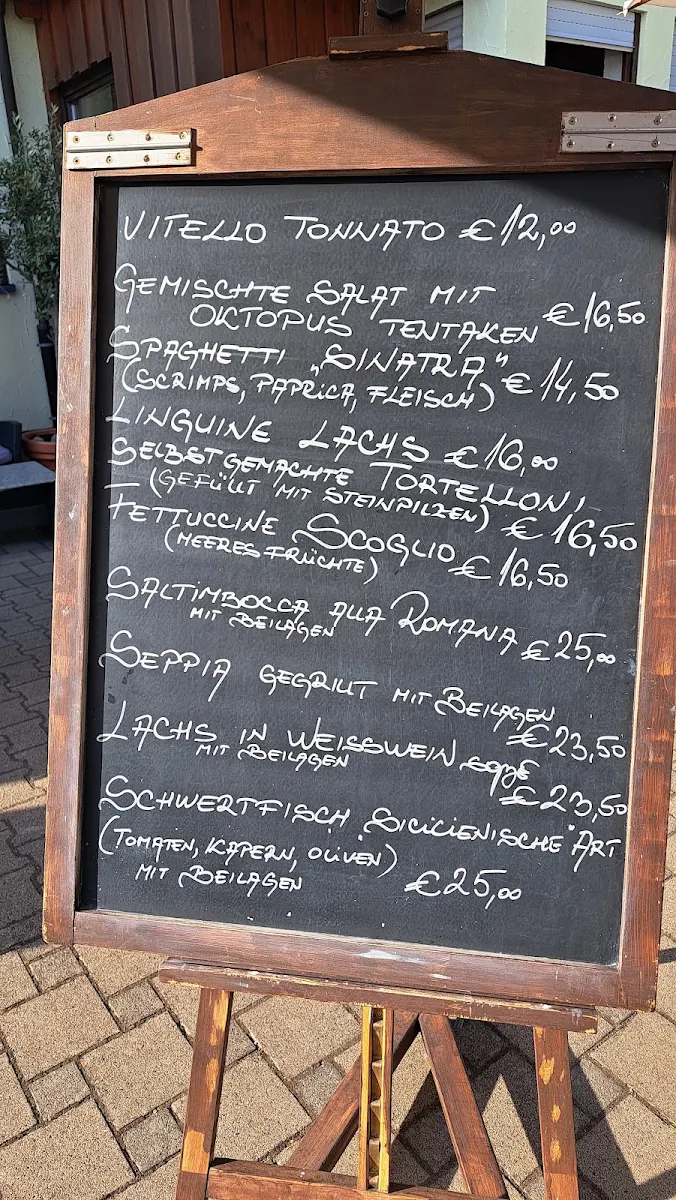 VITELLO TONNATO €12,00
GEMISCHTE SALAT MIT
OKTOPUS TENTAKEN €16,50
SPAGHETTI „SINATRA"
(SCRIMPS, PAPRICA, FLEISCH) €14,50
LINGUINE LACHS €16,00
SELBSTGEMACHTE TORTELLONI
(GEFÜLLT MIT STEINPILZEN) €16,50
FETTUCCINE SCOGLIO
(MEERESFRÜCHTE) €16,50
SALTIMBOCCA ALLA ROMANA
MIT BEILAGEN €25,00
SEPPIA GEGRILLT MIT BEILAGEN
€23,50
LACHS IN WEISSWEIN
MIT BEILAGEN
€23,50
SCHWERTFISCH „SICILIENISCHE" ART
(TOMATEN, KAPERN, OLIVEN)
MIT BEILAGEN €25,00